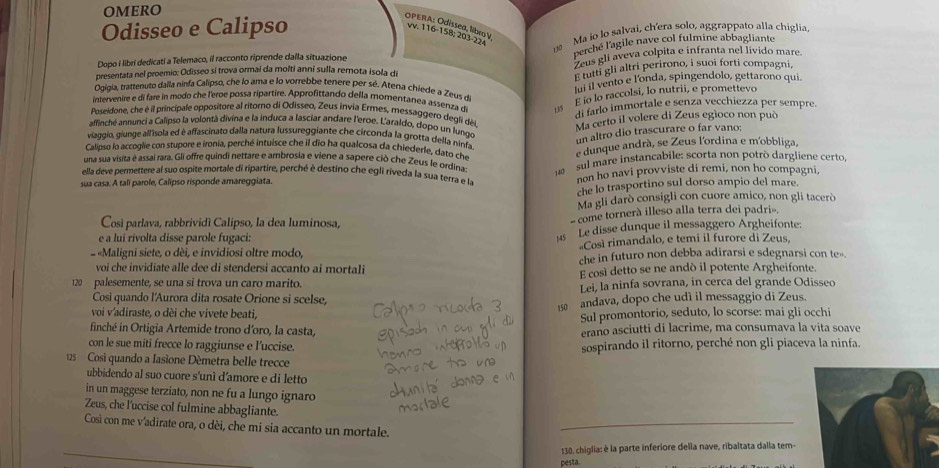 OMERO
Odisseo e Calipso
OPERA: Odissea, libro V,
vv. 116-158; 203-224
Dopo i libri dedicati a Telemaco, il racconto riprende dalla situazione
presentata nel proemio: Odisseo si trova ormai da molti anni sulla remota isola di
Ogigia, trattenuto dalla ninfa Calipso, che lo ama e lo vorrebbe tenere per sé. Atena chiede a Zeus di
intervenire e di fare in modo che l'eroe possa ripartire. Approfittando della momentanea assenza di
Poseidone, che è il principale oppositore al ritorno di Odisseo, Zeus invia Ermes, messaggero degli dèi,
affinché annunci a Calipso la volontà divina e la induca a lasciar andare l'eroe. L'araldo, dopo un lungo
viaggio, giunge all'isola ed è affascinato dalla natura lussureggiante che circonda la grotta della ninfa.
Calipso lo accoglie con stupore e ironia, perché intuisce che il dio ha qualcosa da chiederle, dato che
una sua visita è assai rara. Gli offre quindi nettare e ambrosia e viene a sapere ciò che Zeus le ordina:
ella deve permettere al suo ospite mortale di ripartire, perché è destino che egli riveda la sua terra e la
sua casa. A tali parole, Calipso risponde amareggiata.
Così parlava, rabbrividì Calipso, la dea luminosa,
e a lui rivolta disse parole fugaci:
– «Maligni siete, o dèi, e invidiosi oltre modo,
voi che invidiate alle dee di stendersi accanto ai mortali
120 palesemente, se una si trova un caro marito.
Così quando l'Aurora dita rosate Orione si scelse,
voi v'adiraste, o dèi che vivete beati,
finché in Ortigia Artemide trono d'oro, la casta,
con le sue miti frecce lo raggiunse e l'uccise.
125 Così quando a Iasione Dèmetra belle trecce
ubbidendo al suo cuore s'unì d'amore e di letto
in un maggese terziato, non ne fu a lungo ignaro
Zeus, che l'uccise col fulmine abbagliante.
Così con me v'adirate ora, o dèi, che mi sia accanto un mortale.
Calipso ricorda 3
episodi in cui gli di
hanno interrotto un
amore tra una
divinità donna e in
mortale
130 Ma io lo salvai, ch'era solo, aggrappato alla chiglia,
perché l'agile nave col fulmine abbagliante
Zeus gli aveva colpita e infranta nel livido mare.
E tutti gli altri perirono, i suoi forti compagni,
lui il vento e l'onda, spingendolo, gettarono qui.
135 E io lo raccolsi, lo nutrii, e promettevo
di farlo immortale e senza vecchiezza per sempre.
Ma certo il volere di Zeus egìoco non può
un altro dio trascurare o far vano:
e dunque andrà, se Zeus l'ordina e m'obbliga,
140 sul mare instancabile: scorta non potrò dargliene certo,
non ho navi provviste di remi, non ho compagni,
che lo trasportino sul dorso ampio del mare.
Ma gli darò consigli con cuore amico, non gli tacerò
– come tornerà illeso alla terra dei padri».
145 Le disse dunque il messaggero Argheifonte:
«Così rimandalo, e temi il furore di Zeus,
che in futuro non debba adirarsi e sdegnarsi con te».
E così detto se ne andò il potente Argheifonte.
Lei, la ninfa sovrana, in cerca del grande Odisseo
150 andava, dopo che udì il messaggio di Zeus.
Sul promontorio, seduto, lo scorse: mai gli occhi
erano asciutti di lacrime, ma consumava la vita soave
sospirando il ritorno, perché non gli piaceva la ninfa.
130. chiglia: è la parte inferiore della nave, ribaltata dalla tem-
pesta.